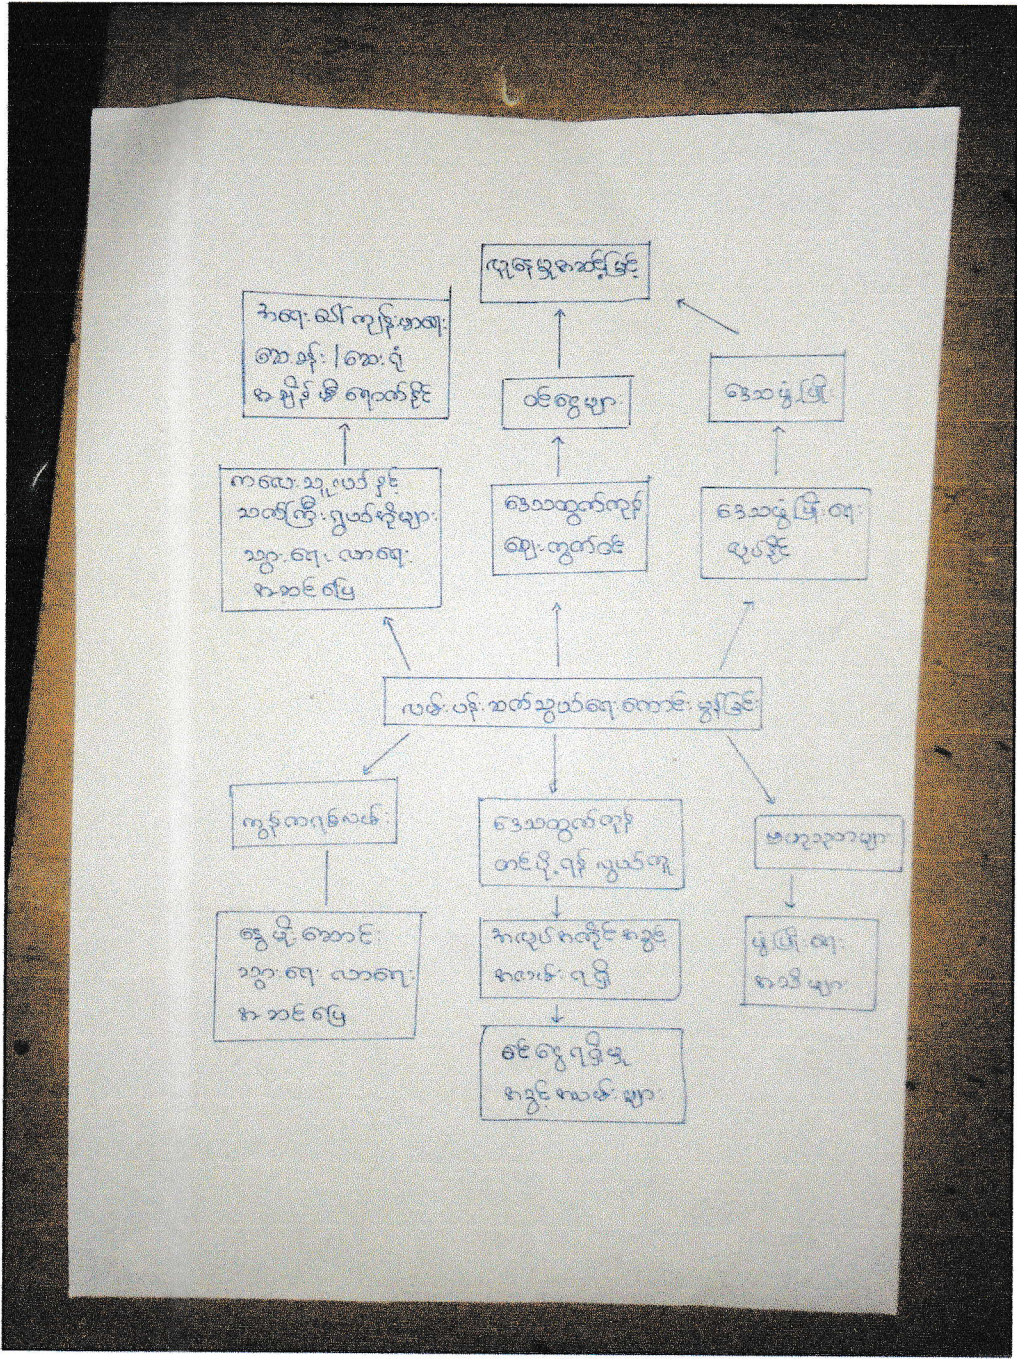 လူနေမှုအဆင့်မြင့်
အရေးပေါ်ကျန်းမာရေး
ဆေးခန်း / ဆေးရုံ
အချိန်မှီရောက်နိုင်
ဝင်ငွေများ
ဒေသဖွံ့ဖြိုး
ကလေးသူငယ်နှင့်
သက်ကြီးရွယ်အိုများ
သွားရေးလာရေး
အဆင်ပြေ
ဒေသထွက်ကုန်
ဈေးကွက်ဝင်
ဒေသဖွံ့ဖြိုးရေး
လုပ်နိုင်
လမ်းပန်းဆက်သွယ်ရေးကောင်းမွန်ခြင်း
ကွန်ကရစ်လမ်း
ဒေသထွက်ကုန်
တင်ပို့ရန်လွယ်ကူ
ဗဟုသုတများ
နွေ မိုး ဆောင်း
သွားရေးလာရေး
အဆင်ပြေ
အလုပ်အကိုင်အခွင့်
အလမ်းရရှိ
ဖွံ့ဖြိုးရေး
အသိများ
ဝင်ငွေရရှိမှု
အခွင့်အလမ်းများ